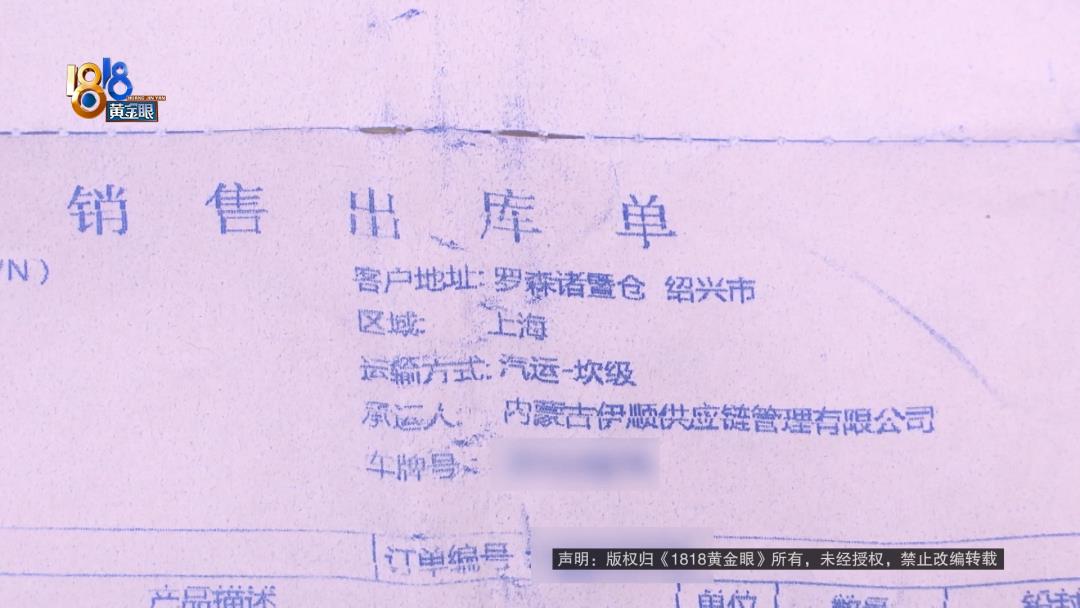 1818
HUANG JIN YAN
黄金眼
销售出库单
/N)
客户地址: 罗森诸暨仓 绍兴市
区域: 上海
运输方式: 汽运-坎级
承运人 内蒙古伊顺供应链管理有限公司
车牌号:
订单编号
声明：版权归《1818黄金眼》所有，未经授权，禁止改编转载
产品描述 单位 数量 铅封